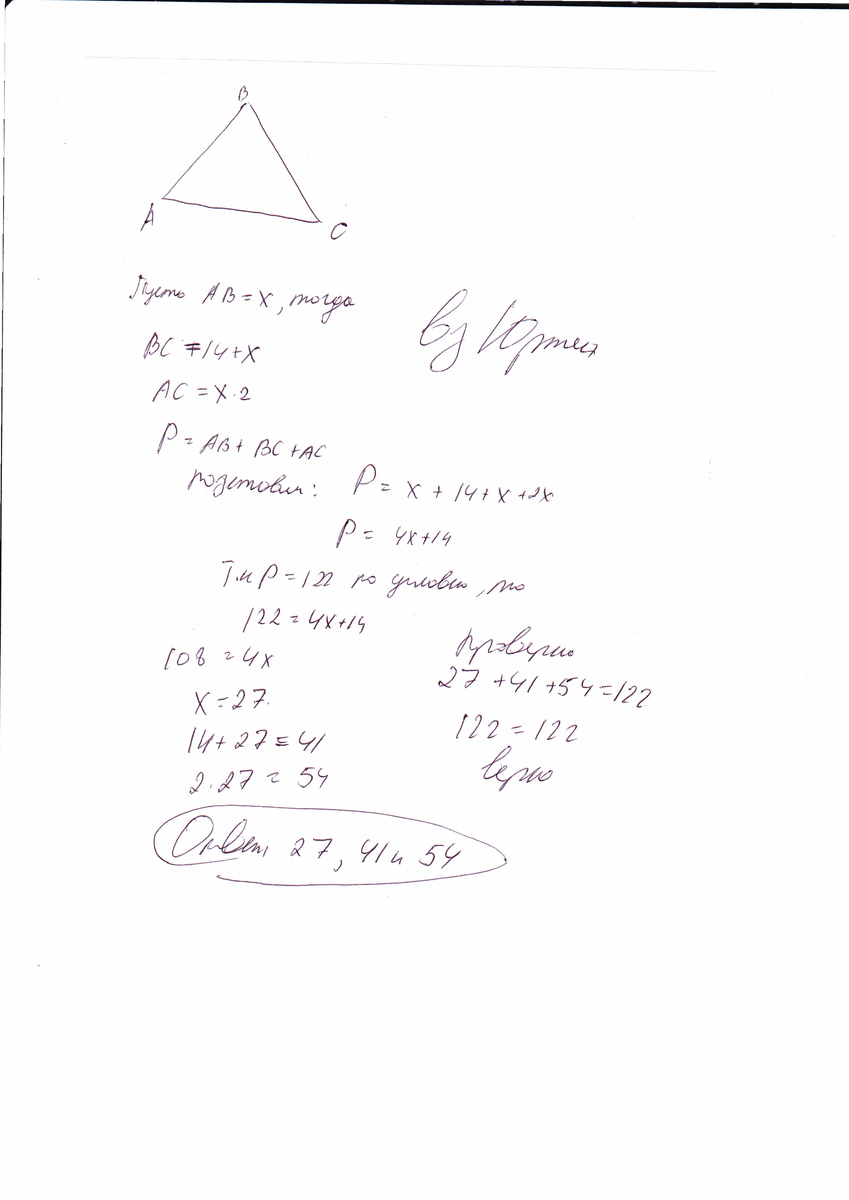 B
A
C
Пусть AB = x, тогда
BC = 14 + x
AC = x · 2
P = AB + BC + AC
подставим: P = x + 14 + x + 2x
P = 4x + 14
Т.к P = 122 по условию, то
122 = 4x + 14
108 = 4x
x = 27.
14 + 27 = 41
2 · 27 = 54
проверяю
27 + 41 + 54 = 122
122 = 122
верно
Ответ 27, 41 и 54